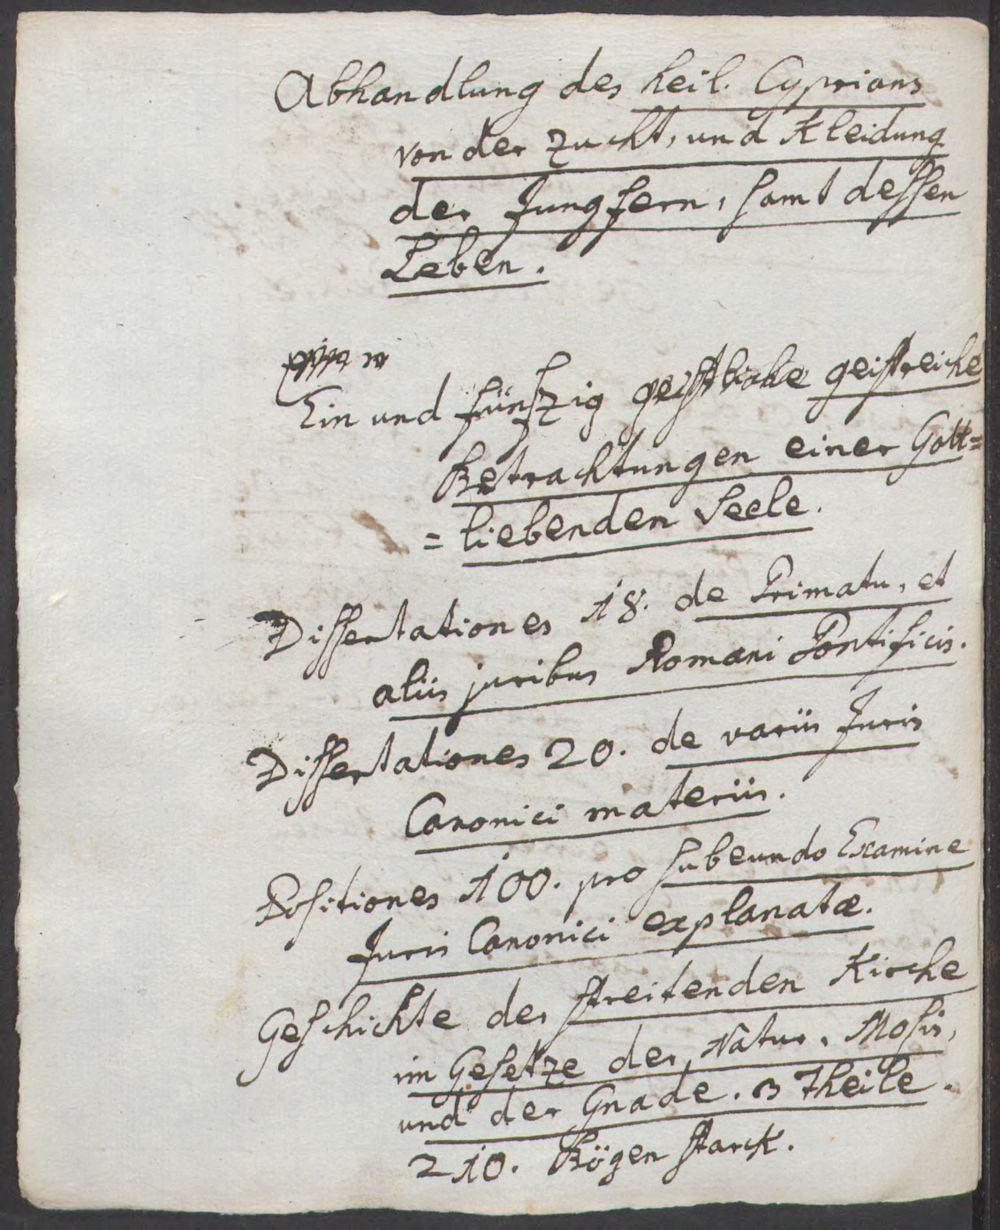 Abhandlung des heil. Cyprians
von der Zucht, und Kleidung
der Jungfern, samt dessen
Leben.
Ein und fünfzig geistliche geistreiche
Betrachtungen einer Gott=
=liebenden Seele.
Dissertationes 18. de Primatu, et
aliis juribus Romani Pontificis.
Dissertationes 20. de variis Juris
Canonici materiis.
Positiones 100. pro subeundo Examine
Juris Canonici explanatæ.
Geschichte der streitenden Kirche
im Gesetze der Natur, Mosis,
und der Gnade. 3 Theile.
210. Bögen starck.